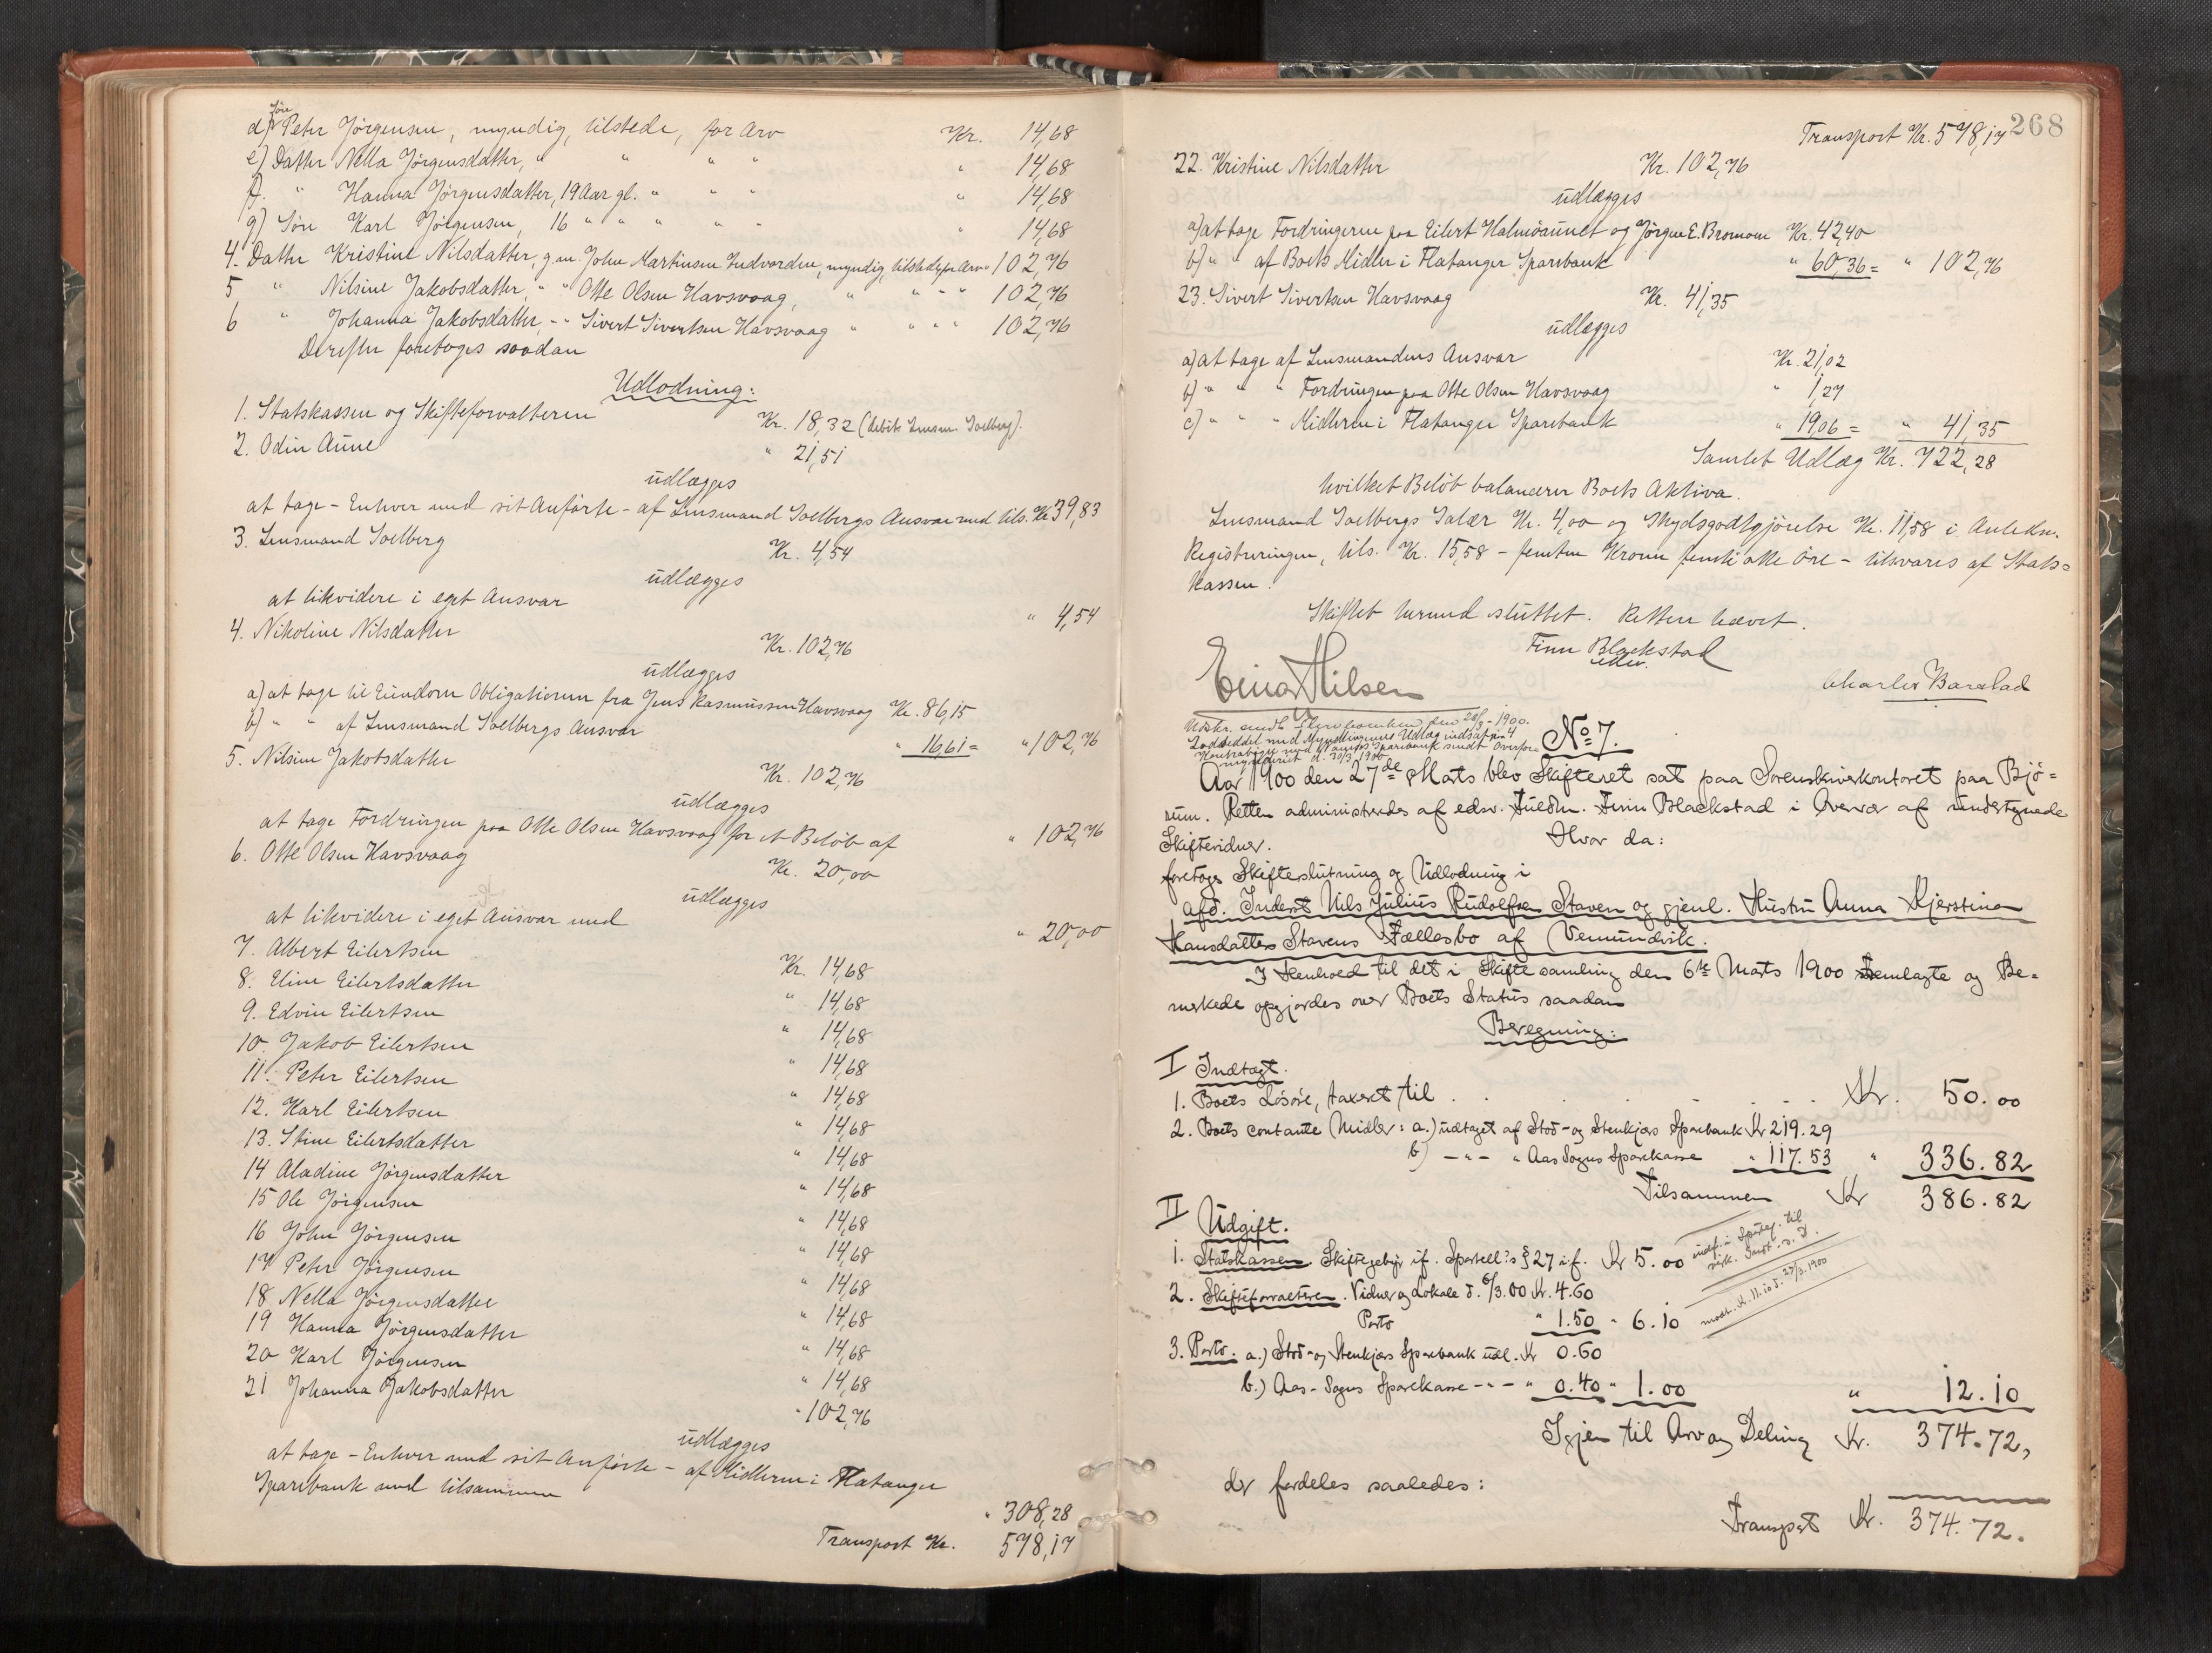 d) Søn Peter Jörgensen, myndig, tilstede, for Arv Kr. 14,68
e) Datter Nella Jörgensdatter, " " " " " 14,68
f. " Hanna Jörgensdatter, 19 Aar gl. " " " " 14,68
g) Søn Karl Jörgensen, 16 " " " " " 14,68
4. Datter Kristine Nilsdatter, g.m. John Martinsen Indvorden, myndig, tilstede, for Arv " 102,76
5 " Nilsine Jakobsdatter, " " Otte Olsen Havsvaag, " " " " 102,76
6 " Johanna Jakobsdatter, - " Sivert Sivertsen Havsvaag " " " " 102,76
Derefter foretoges saadan
Udlodning:
1. Statskassen og Skifteforvalteren Kr. 18,32 (debit. Lensm. Solberg).
2. Odin Aune " 21,51
udlægges
at tage - Enhver med sit Anførte - af Lensmand Solbergs Ansvar med tils. Kr 39,83
3. Lensmand Solberg Kr. 4,54
udlægges
at likvidere i eget Ansvar " 4,54
4. Nikoline Nilsdatter Kr. 102,76
udlægges
a) at tage til Eiendom Obligationen fra Jens Rasmussen Havsvaag Kr. 86,15
b) " " af Lensmand Solbergs Ansvar " 16,61 = " 102,76
5. Nilsine Jakobsdatter Kr. 102,76
udlægges
at tage Fordringen paa Otte Olsen Havsvaag for et Beløb af " 102,76
6. Otte Olsen Havsvaag Kr. 20,00
udlægges
at likvidere i eget Ansvar med " 20,00
7. Albert Eilertsen Kr. 14,68
8. Eline Eilertsdatter " 14,68
9. Edvin Eilertsen " 14,68
10. Jakob Eilertsen " 14,68
11. Peter Eilertsen " 14,68
12. Karl Eilertsen " 14,68
13. Stine Eilertsdatter " 14,68
14 Aladine Jörgensdatter " 14,68
15 Ole Jörgensen " 14,68
16 John Jörgensen " 14,68
17 Peter Jörgensen " 14,68
18 Nella Jörgensdatter " 14,68
19 Hanna Jörgensdatter " 14,68
20 Karl Jörgensen " 14,68
21 Johanna Jakobsdatter " 102,76
udlægges
at tage - Enhver med sit Anførte - af Midlerne i Flatanger
Sparebank med tilsammen " 308,28
Transport Kr. 578,17
268
Transport Kr. 578,17
22. Kristine Nilsdatter Kr. 102,76
udlægges
a) at tage Fordringerne paa Eilert Halmöaunet og Jörgen E. Bromoen Kr. 42,40
b) " " af Boets Midler i Flatanger Sparebank " 60,36 = " 102,76
23. Sivert Sivertsen Havsvaag Kr. 41,35
udlægges
a) at tage af Lensmandens Ansvar Kr. 21,02
b) " " " Fordringen paa Otte Olsen Havsvaag " 1,27
c) " " " Midlerne i Flatanger Sparebank " 19,06 = " 41,35
Samlet Udlæg Kr. 722,28
hvilket Beløb balancerer Boets Aktiva.
Lensmand Solbergs Salær Kr. 4,00 og Skydsgodtgjörelse Kr. 11,58 i Anledn.
Registreringen, tils. Kr. 15,58 - femten Kroner femti otte Öre - tilsvares af Stats=
kassen.
Skiftet hermed sluttet. Retten hævet.
Finn Blackstad
edsv.
Einar Nilsen
Charles Barstad
Udskr. sendt den 28/3 - 1900.
Lodseddel med Myndlingernes Udlæg indsat paa 4
Kontrabøger med Namsos Sparebank sendt Overfor=
mynderiet d. 30/3 1900
No 7.
Aar 1900 den 27de Marts blev Skifteret sat paa Sorenskriverkontoret paa Bjö=
rum. Retten administredes af edsv. Fuldm. Finn Blackstad i Overvær af undertegnede
Skiftevidner. Hvor da:
foretoges Skifteslutning og Udlodning i
afd. Inderst Nils Julius Rudolfsen Staven og gjenl. Hustru Anna Kjerstina
Hansdatter Stavens Fællesbo af Vemundvik.
I Henhold til det i Skiftesamling den 6te Marts 1900 Fremlagte og Be=
mærkede opgjordes over Boets Status saadan
Beregning:
I Indtægt.
1. Boets Løsøre, taxeret til . . . . . Kr. 50.00
2. Boets contante Midler: a.) udtaget af Stod- og Stenkjær Sparebank Kr 219.29
b) - " - " Aas Sogns Sparekasse " 117.53 " 336.82
Tilsammen Kr 386.82
II Udgift.
1. Statskassen. Skiftegebyr if. Sportell. s § 27 i f. Kr 5.00
2. Skifteforvalteren. Vidner og Lokale d. 6/3.00 Kr. 4.60
Porto " 1.50 " 6.10
modt. Kr. 11.10 d. 27/3.1900
3. Porto: a.) Stod- og Stenkjær Sparebank udl. Kr 0.60
b.) Aas-Sogns Sparekasse - " - " 0.40 " 1.00 " 12.10
Igjen til Arv og Deling Kr. 374.72,
der fordeles saaledes:
Transport Kr. 374.72.